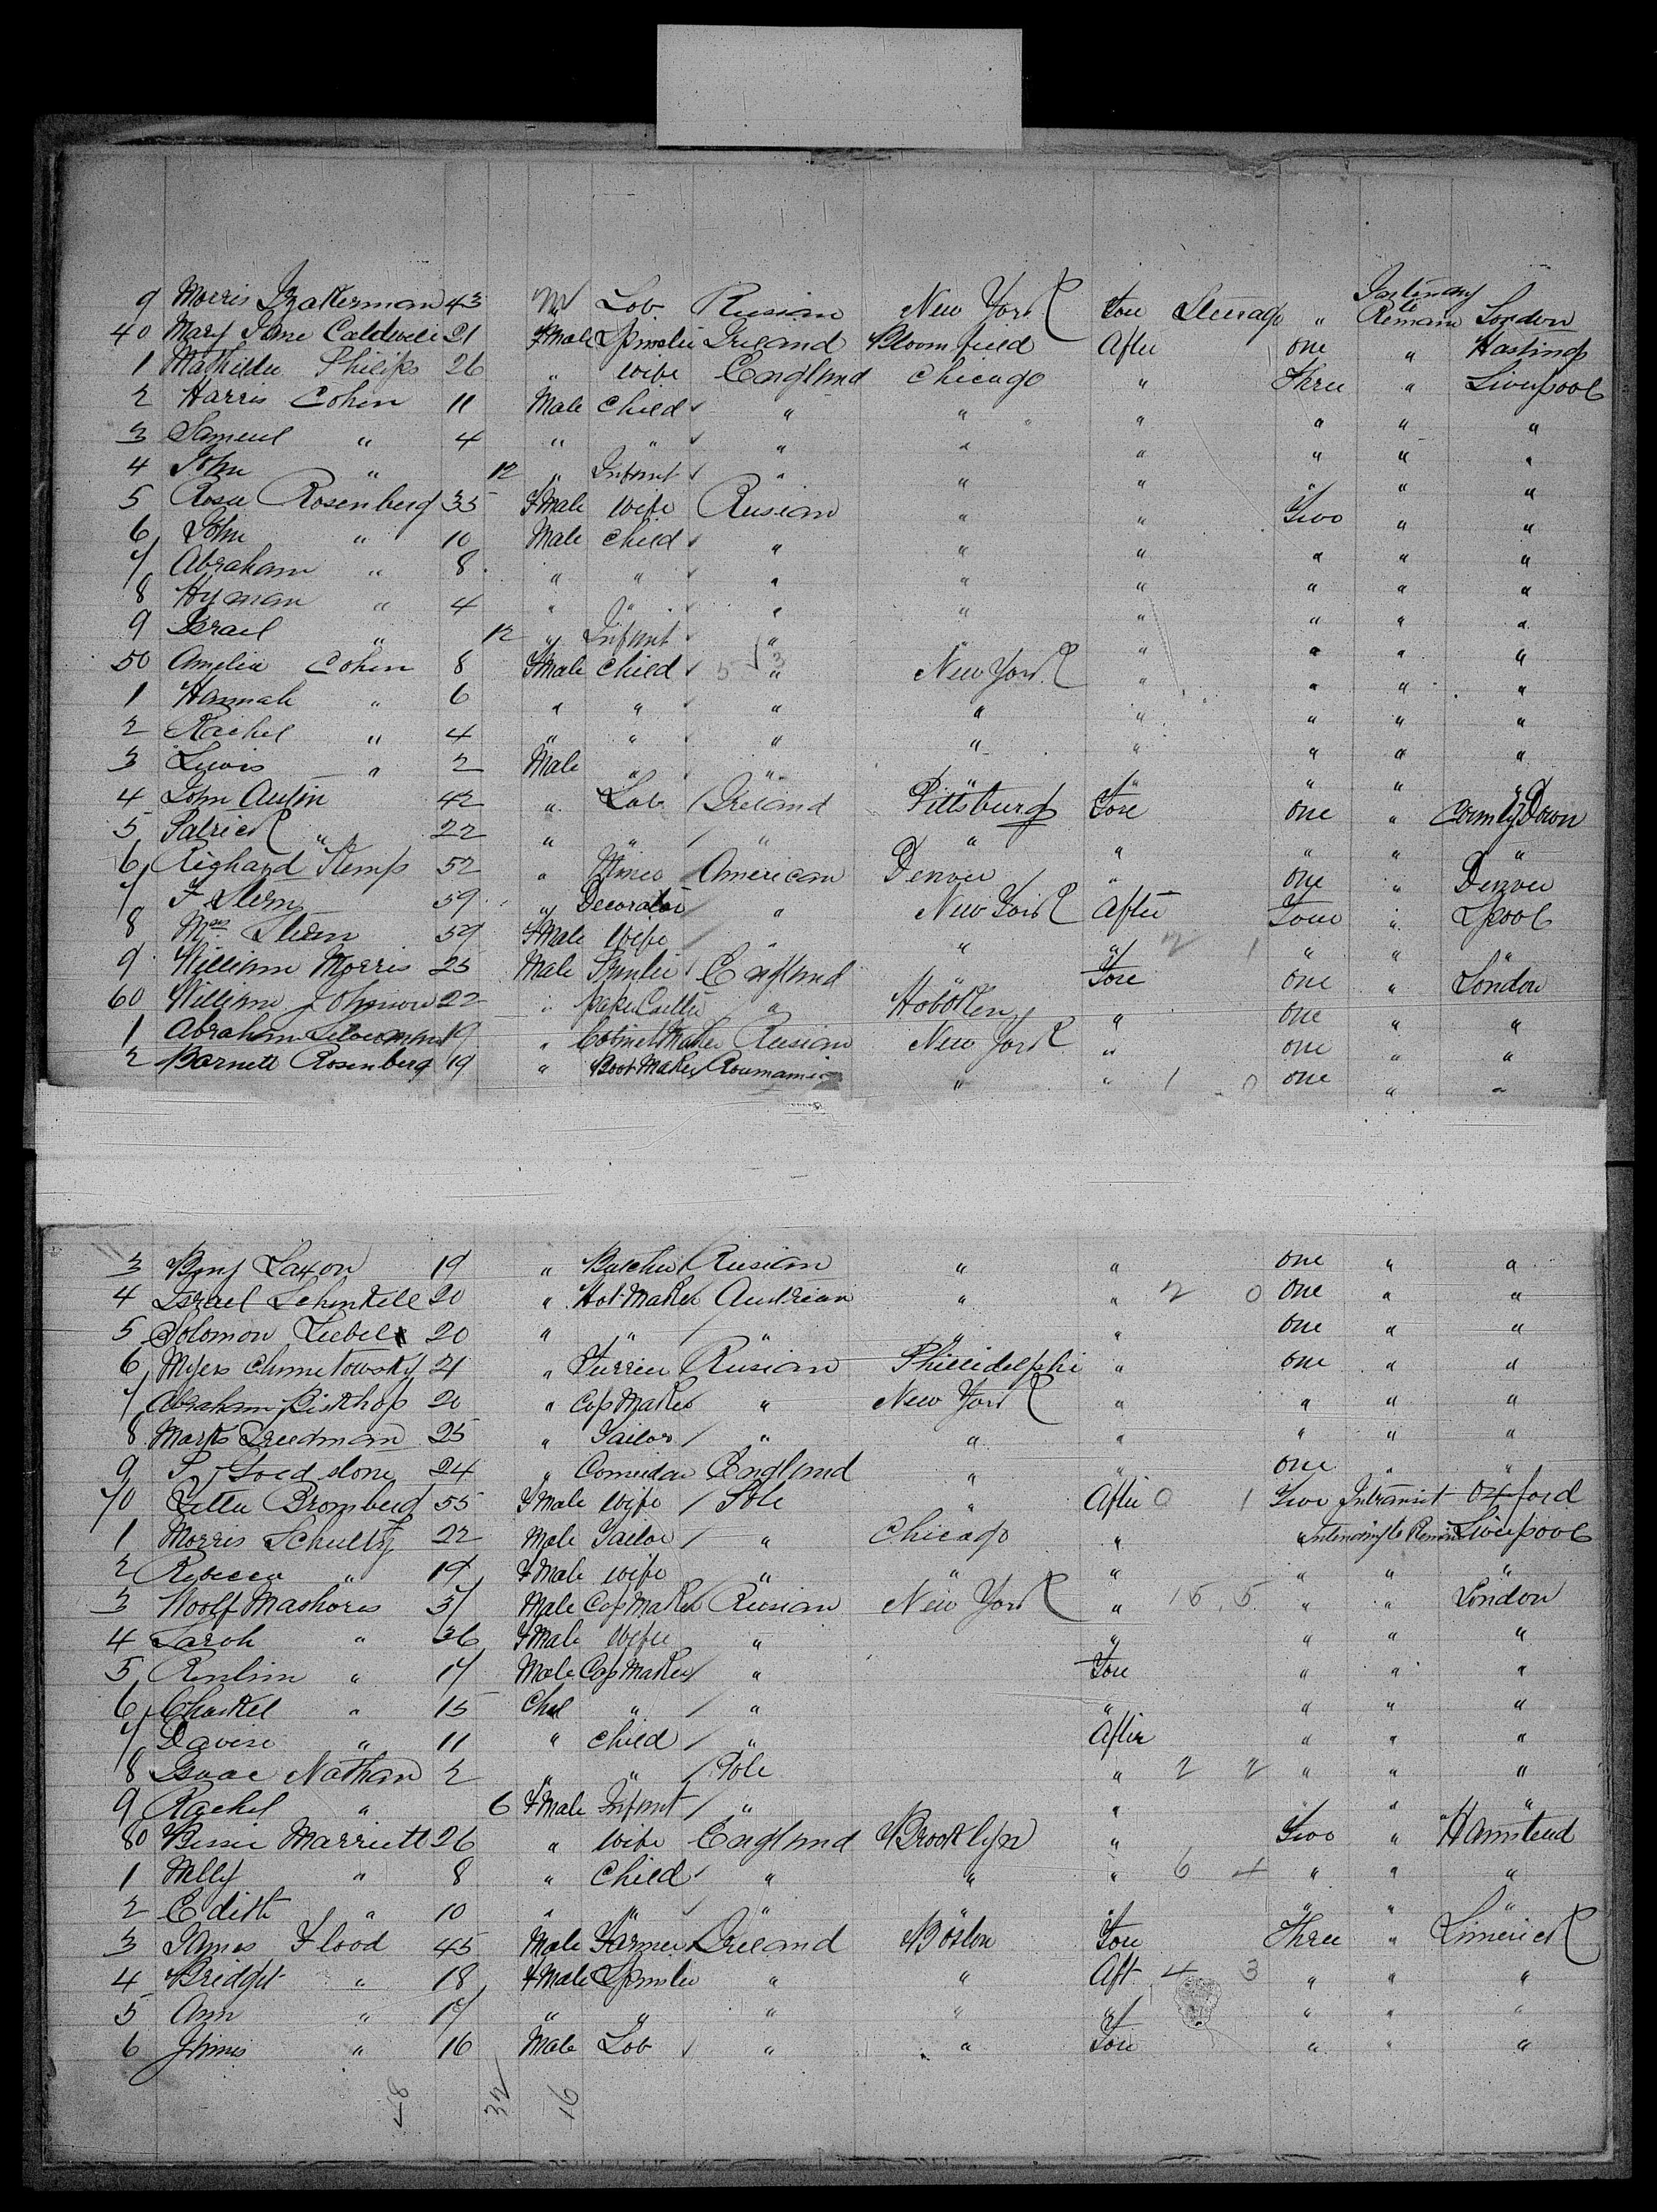 9 Morris Bakerman 43 M Lab Rusian New York Fore Steerage " Intending to Remain London
40 Mary Jane Caldwell 21 Fmale Spinster Ireland Bloomfield After one " Hastings
1 Mathilda Philips 26 " wife England Chicago " Three " Liverpool
2 Harris Cohen 11 Male Child " " " " " "
3 Samuel " 4 " " " " " " " "
4 John " 12 " Infant " " " " " "
5 Rosa Rosenberg 35 Fmale wife Rusian " " Two " "
6 John " 10 Male Child " " " " " "
7 Abraham " 8 " " " " " " " "
8 Hyman " 4 " " " " " " " "
9 Israel " 12 " Infant " " " " " "
50 Amelia Cohen 8 Fmale Child " New York " " " "
1 Hannah " 6 " " " " " " " "
2 Rachel " 4 " " " " " " " "
3 Lewis " 2 Male " " " " " " "
4 John Austin 42 " Lab Ireland Pittsburg Fore one " County Down
5 Patrick " 22 " " " " " " " "
6 Righard Kemp 52 " Miner American Denver " one " Denver
7 F Stern 59 " Decorator " New York After Four " Lpool
8 Mrs Stern 59 Fmale wife " " " 2 1 " " "
9 William Morris 25 Male England " Fore one " London
60 William Johnson 22 " " Hoboken " one " "
1 Abraham Silverman 19 " Cabinet Maker Rusian New York " one " "
2 Barnett Rosenberg 19 " Boot Maker Roumania " " 1 0 one " "
3 Benj Saxon 19 " Butcher Rusian " " one " "
4 Israel Schenkell 20 " Hat Maker Austrian " " 2 0 one " "
5 Solomon Liebel 20 " " " " " one " "
6 Myers 21 " Furrier Rusian Philidelphi " one " "
7 Abraham Biskhop 20 " Cap Maker " New York " " " "
8 Marks Freedman 25 " Tailor " " " " " "
9 Goldstone 24 " England " " one " "
70 Yetta Bromberg 55 Fmale wife Pole " After 0 1 Two Intransit Oxford
1 Morris Schultz 22 Male Tailor " Chicago " " Intending to Remain Liverpool
2 Rebecca " 19 Fmale wife " " " " " "
3 Woolf 37 Male Cap Maker Rusian New York " 15 5 " " London
4 Sarah " 36 Fmale wife " " " " "
5 " 17 Male Cap Maker " Fore " " "
6 Chaskel " 15 " " " " " " "
7 " 11 " Child " After " " "
8 Isaac Nathan 2 " " Pole " 2 2 " " "
9 Rachel " 6 Fmale Infant " " " "
80 Bessie Marriett 26 " wife England Brooklyn " Two " Hamstead
1 Milly " 8 " Child " " " 6 4 " " "
2 Edith " 10 " " " " " " "
3 James Flood 45 Male Farmer Ireland Boston Fore Three " Limerick
4 Bridget " 18 Fmale Spinster " " Aft 4 3 " " "
5 Ann " 17 " " " " " " " "
6 James " 16 Male Lab " " Fore " " "
48 32 16